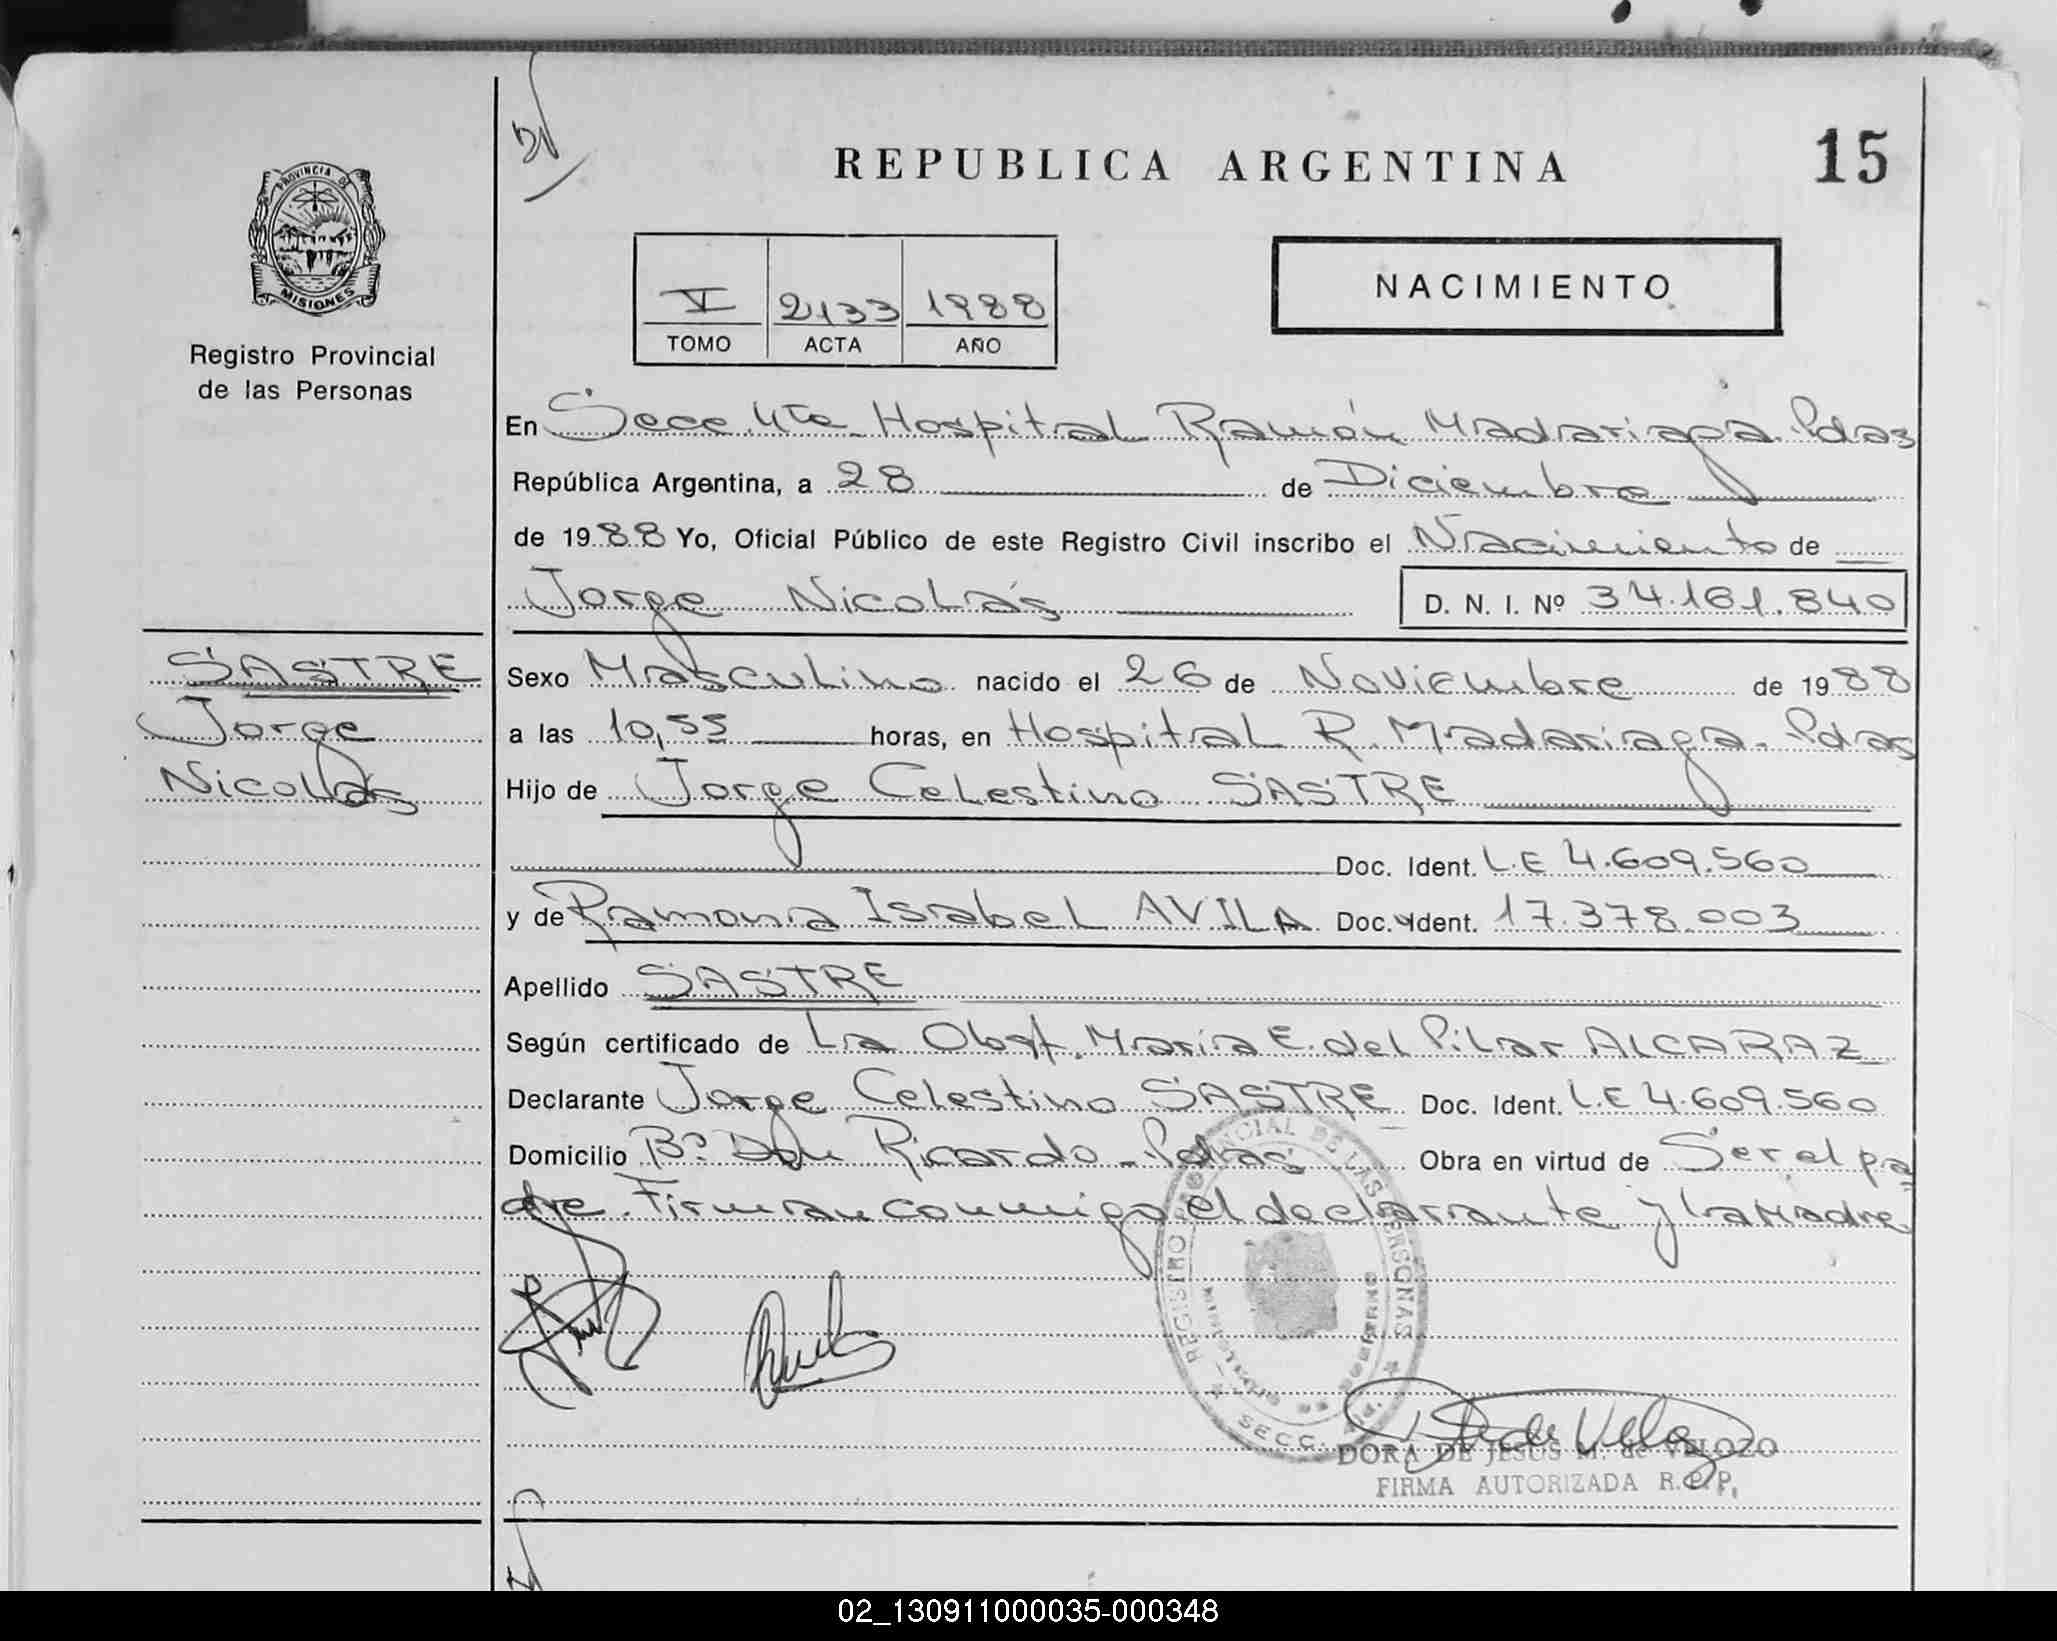 REPUBLICA ARGENTINA
15
PROVINCIA DE
MISIONES
Registro Provincial
de las Personas
V 2133 1988
TOMO ACTA AÑO
NACIMIENTO
En Secc. 4ta. Hospital Ramón Madariaga. Pdas
República Argentina, a 28 de Diciembre
de 1988 Yo, Oficial Público de este Registro Civil inscribo el Nacimiento de
Jorge Nicolás
D. N. I. Nº 34.161.840
SASTRE
Jorge
Nicolás
Sexo Masculino nacido el 26 de Noviembre de 1988
a las 10,55 horas, en Hospital R. Madariaga. Pdas
Hijo de Jorge Celestino SASTRE
Doc. Ident. L.E 4.609.560
y de Ramona Isabel AVILA Doc. Ident. 17.378.003
Apellido SASTRE
Según certificado de La Obst. María E. del Pilar ALCARAZ
Declarante Jorge Celestino SASTRE Doc. Ident. L.E 4.609.560
Domicilio Bº Don Ricardo - Pdas Obra en virtud de Ser el pa
dre. Firman conmigo el declarante y la Madre
REGISTRO PROVINCIAL DE LAS PERSONAS
SECC.
DORA DE JESUS M. de VELOZO
FIRMA AUTORIZADA R.P.P.
02_130911000035-000348